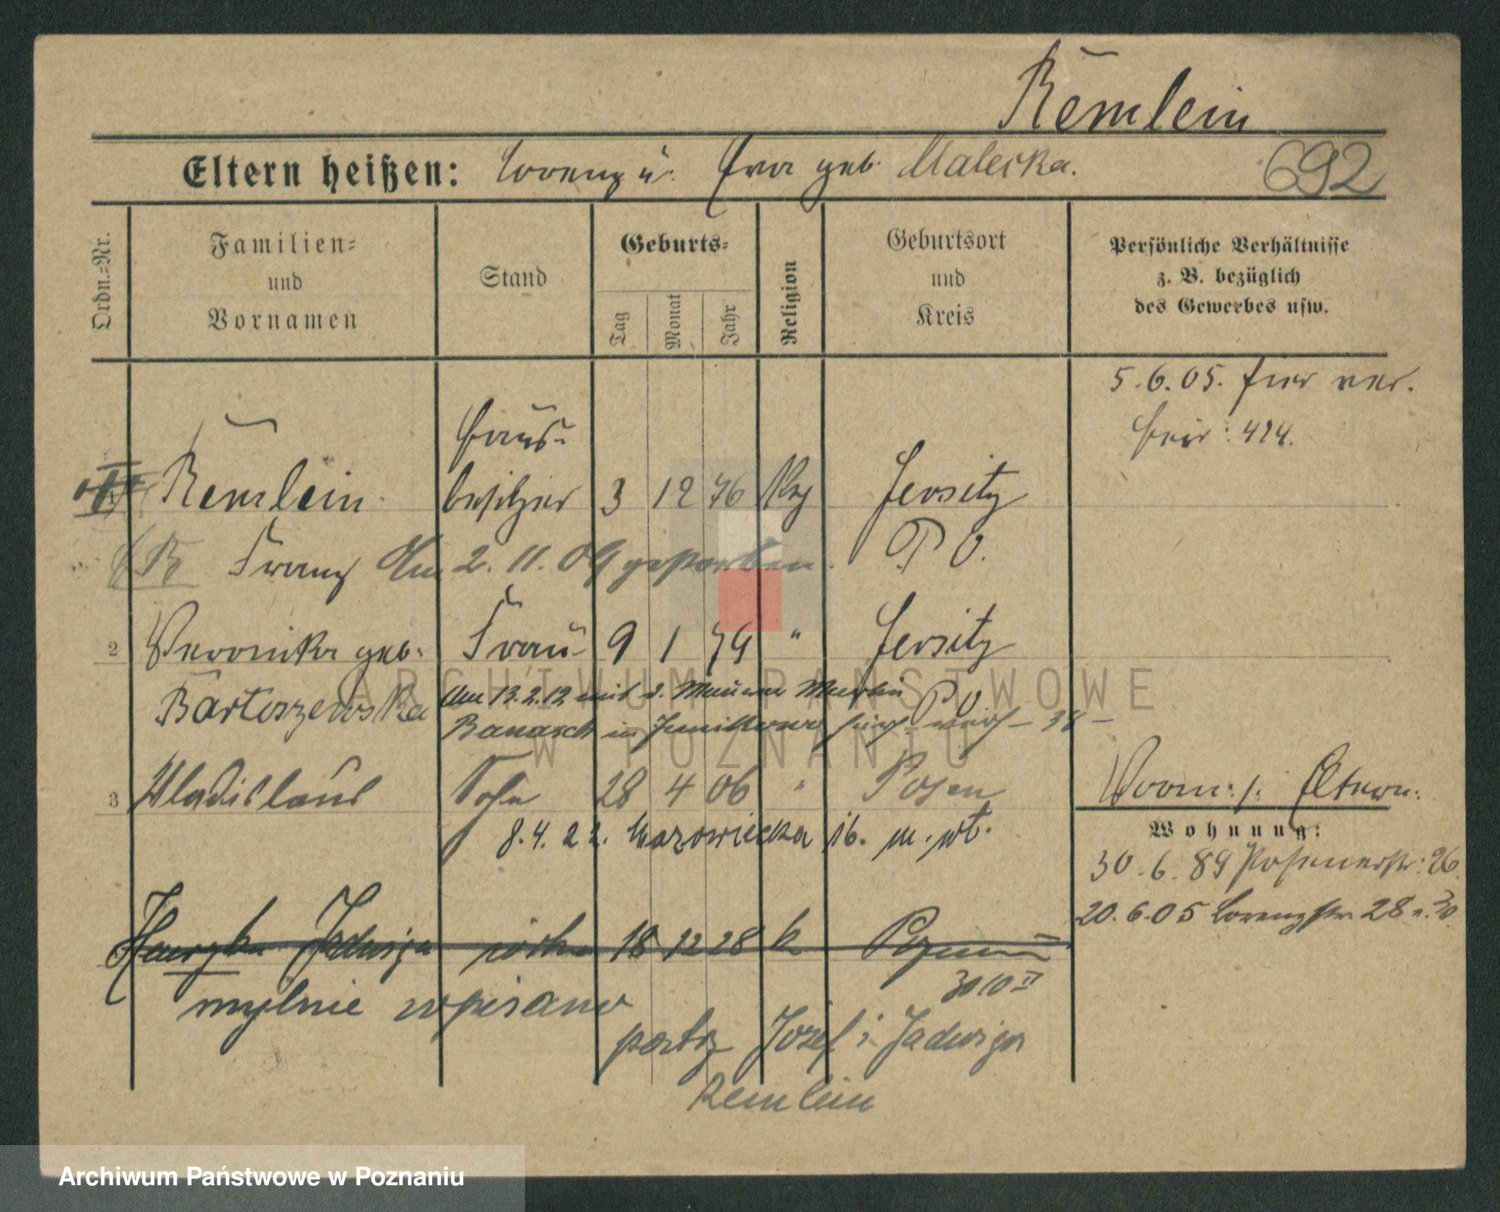 Remlein
Eltern heißen: Lorenz u. Eva geb. Maleska.
692
Ordn.=Nr.
Familien=
und
Vornamen
Stand
Geburts=
Tag
Monat
Jahr
Religion
Geburtsort
und
Kreis
Persönliche Verhältnisse
z. B. bezüglich
des Gewerbes usw.
5. 6. 05. hier ver.
heir: 424.
Haus=
Remlein besitzer 3 12 76 Jersitz
Franz Am 2. 11. 09 gestorben. P O.
2 Veronika geb. Frau 9 1 79 " Jersitz
Bartoszewska Am 13.2.12 mit d. P O
Banasch in
3 Wladislaus Sohn 28 4 06 " Posen
8. 4. 22. Mazowiecka 16. m. wł.
Wohn: b. Eltern.
Wohnung:
30. 6. 89 Posenerstr: 26.
20. 6. 05 Lorenzstr. 28 u. 30
Jadwiga córka 18 12 28 k Poznań
mylnie wpisano
patrz Józef i Jadwiga
Remlein
ARCHIWUM PAŃSTWOWE
W POZNANIU
Archiwum Państwowe w Poznaniu